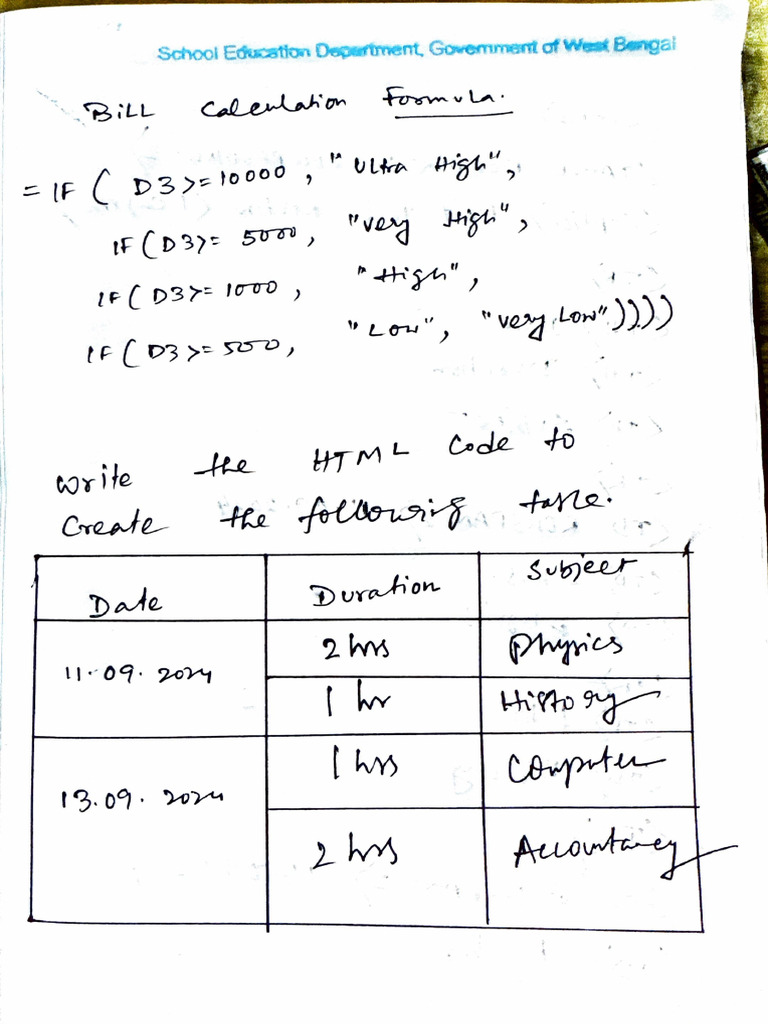 School Education Department, Government of West Bengal
Bill Calculation Formula.
= IF ( D3>=10000, "Ultra High",
IF ( D3>= 5000, "very High",
IF ( D3>= 1000, "High",
IF ( D3>=500, "Low", "very Low"))))
Write the HTML Code to
Create the following table.
Date Duration Subject
11.09.2024 2 hrs Physics
1 hr History
13.09.2024 1 hrs Computer
2 hrs Accountancy